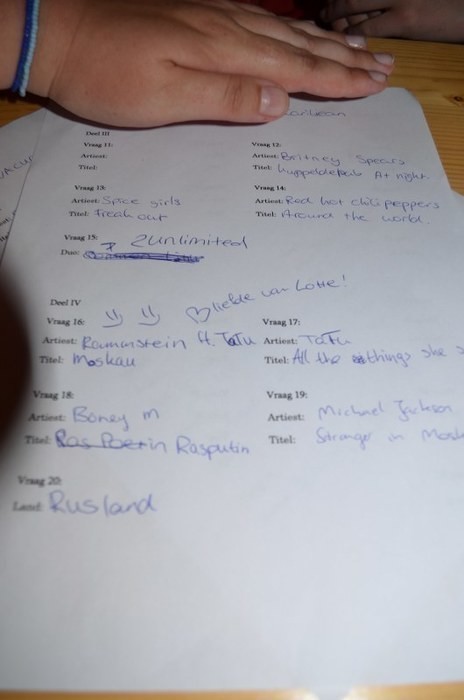 Caribean
Deel III
Vraag 11: Vraag 12:
Artiest: Artiest: Britney Spears
Titel: Titel: At night
Vraag 13: Vraag 14:
Artiest: Spice girls Artiest: Red hot chili peppers
Titel: Freak out Titel: Around the world.
Vraag 15:
Duo: 2Unlimited
Deel IV liefde van Lotte!
Vraag 16: Vraag 17:
Artiest: Rammstein ft. Tatu Artiest: TaTu
Titel: Moskau Titel: All the things she
Vraag 18: Vraag 19:
Artiest: Boney m Artiest: Michael Jackson
Titel: Rasputin Titel: Stranger in Mosk
Vraag 20:
Land: Rusland